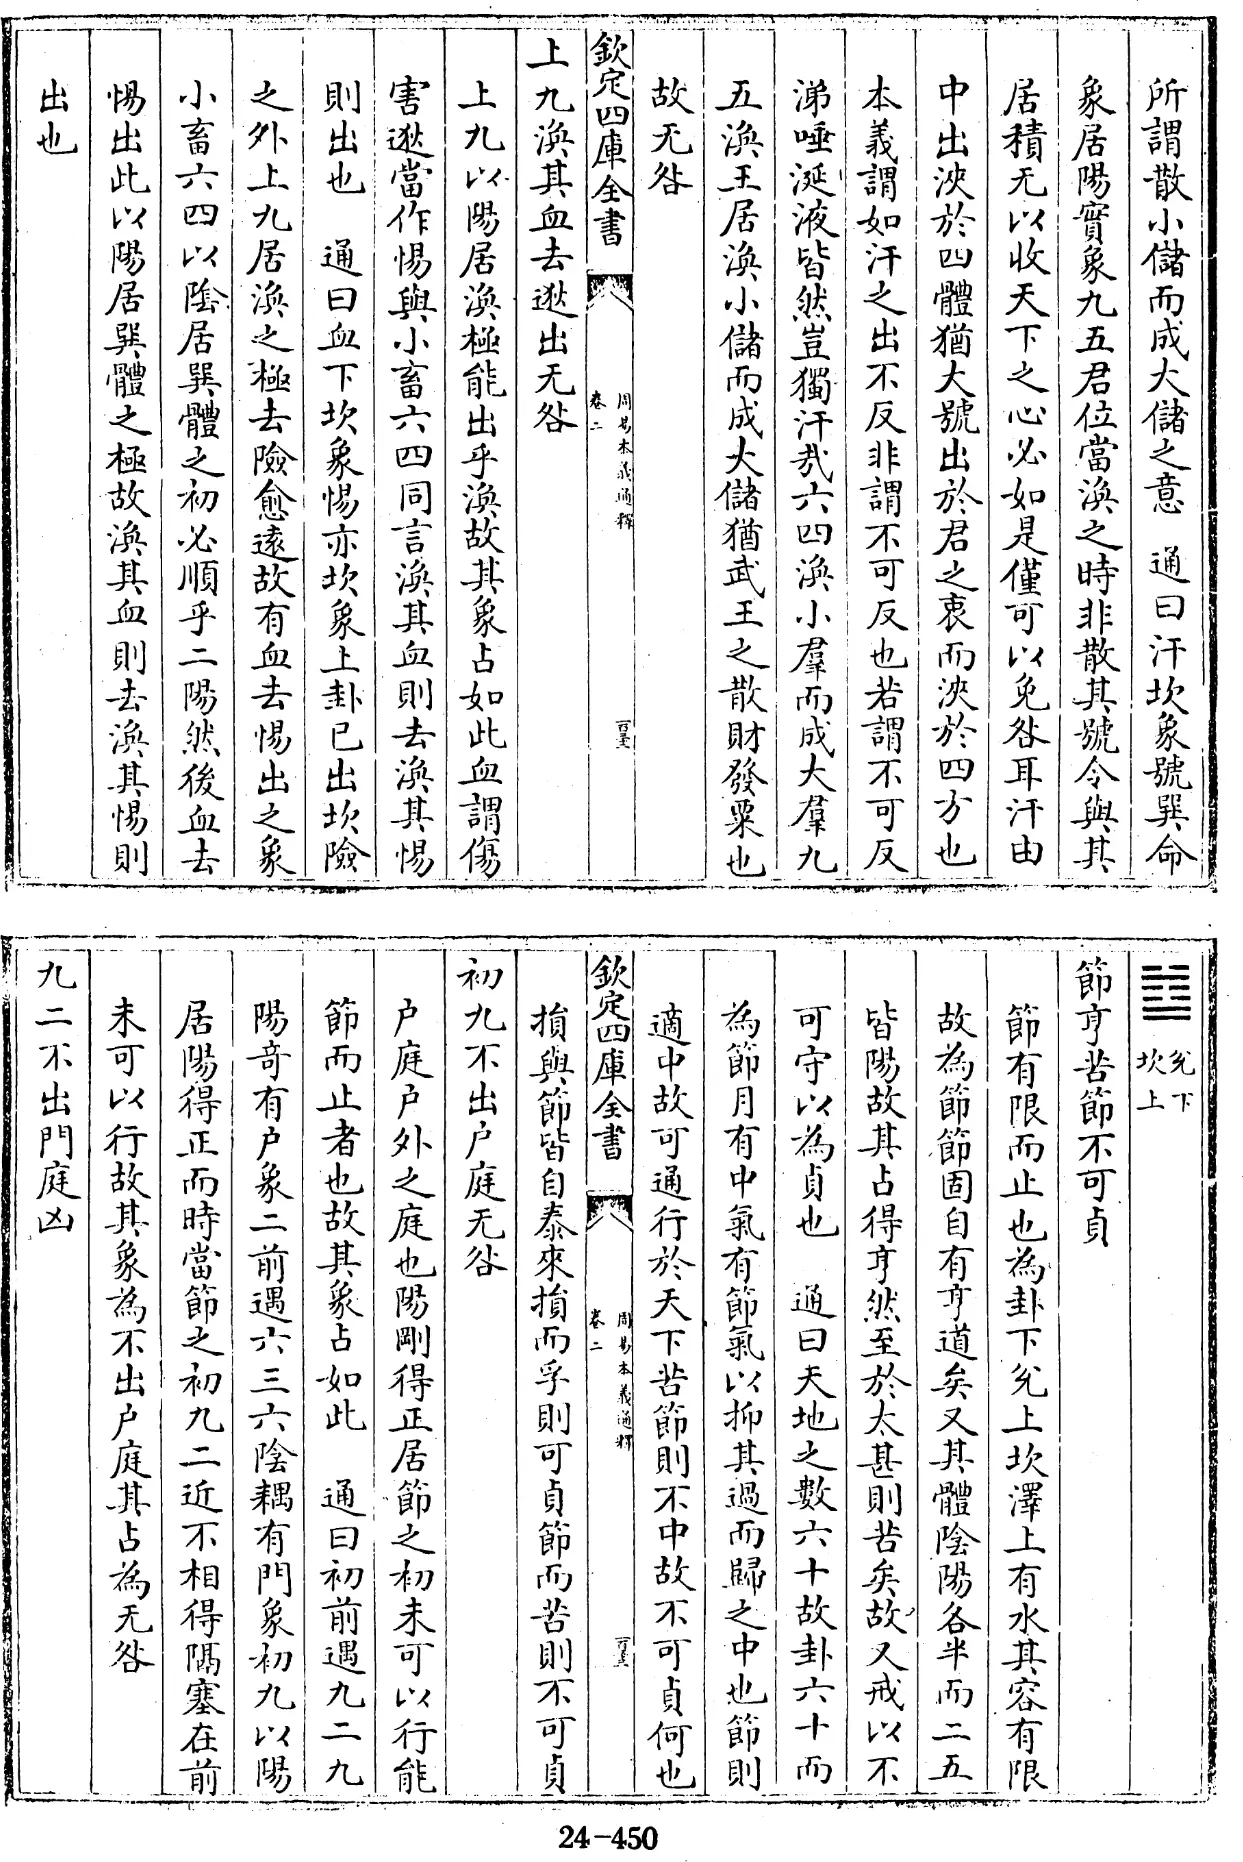 所謂散小儲而成大儲之意　通曰汗坎象號巽命
象居陽實象九五君位當渙之時非散其號令與其
居積无以收天下之心必如是僅可以免咎耳汗由
中出浹於四體猶大號出於君之衷而浹於四方也
本義謂如汗之出不反非謂不可反也若謂不可反
涕唾涎液皆然豈獨汗哉六四渙小羣而成大羣九
五渙王居渙小儲而成大儲猶武王之散財發粟也
故无咎
欽定四庫全書
周易本義通釋
卷二
上九渙其血去逖出无咎
上九以陽居渙極能出乎渙故其象占如此血謂傷
害逖當作惕與小畜六四同言渙其血則去渙其惕
則出也　通曰血下坎象惕亦坎象上卦已出坎險
之外上九居渙之極去險愈遠故有血去惕出之象
小畜六四以陰居巽體之初必順乎二陽然後血去
惕出此以陽居巽體之極故渙其血則去渙其惕則
出也
䷻
兌下
坎上
節亨苦節不可貞
節有限而止也為卦下兌上坎澤上有水其容有限
故為節節固自有亨道矣又其體陰陽各半而二五
皆陽故其占得亨然至於太甚則苦矣故又戒以不
可守以為貞也　通曰天地之數六十故卦六十而
為節月有中氣有節氣以抑其過而歸之中也節則
適中故可通行於天下苦節則不中故不可貞何也
欽定四庫全書
周易本義通釋
卷二
損與節皆自泰來損而孚則可貞節而苦則不可貞
初九不出户庭无咎
户庭户外之庭也陽剛得正居節之初未可以行能
節而止者也故其象占如此　通曰初前遇九二九
陽奇有户象二前遇六三六陰耦有門象初九以陽
居陽得正而時當節之初九二近不相得隔塞在前
未可以行故其象為不出户庭其占為无咎
九二不出門庭凶
24-450